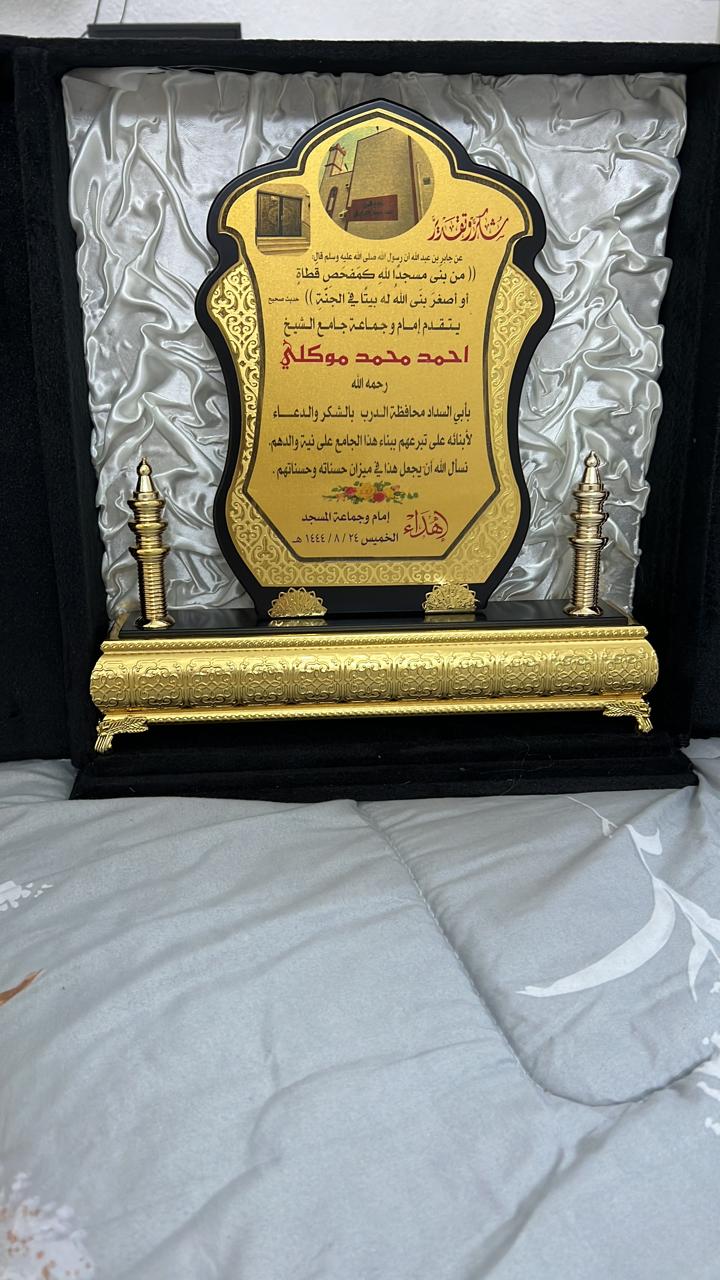 شكر وتقدير
عن جابر بن عبد الله أن رسول الله صلى الله عليه وسلم قال:
(( من بنى مسجدًا لله كمَفْحَص قطاةٍ
أو أصغرَ بنَى اللهُ له بيتًا في الجنّة )) حديث صحيح
يتقدم إمام وجماعة جامع الشيخ
احمد محمد موكلي
رحمه الله
بأبي السداد محافظة الدرب بالشكر والدعاء
لأبنائه على تبرعهم ببناء هذا الجامع على نية والدهم.
نسأل الله أن يجعل هذا في ميزان حسناته وحسناتهم .
إهداء
إمام وجماعة المسجد
الخميس ٢٤ / ٨ / ١٤٤٤ هـ